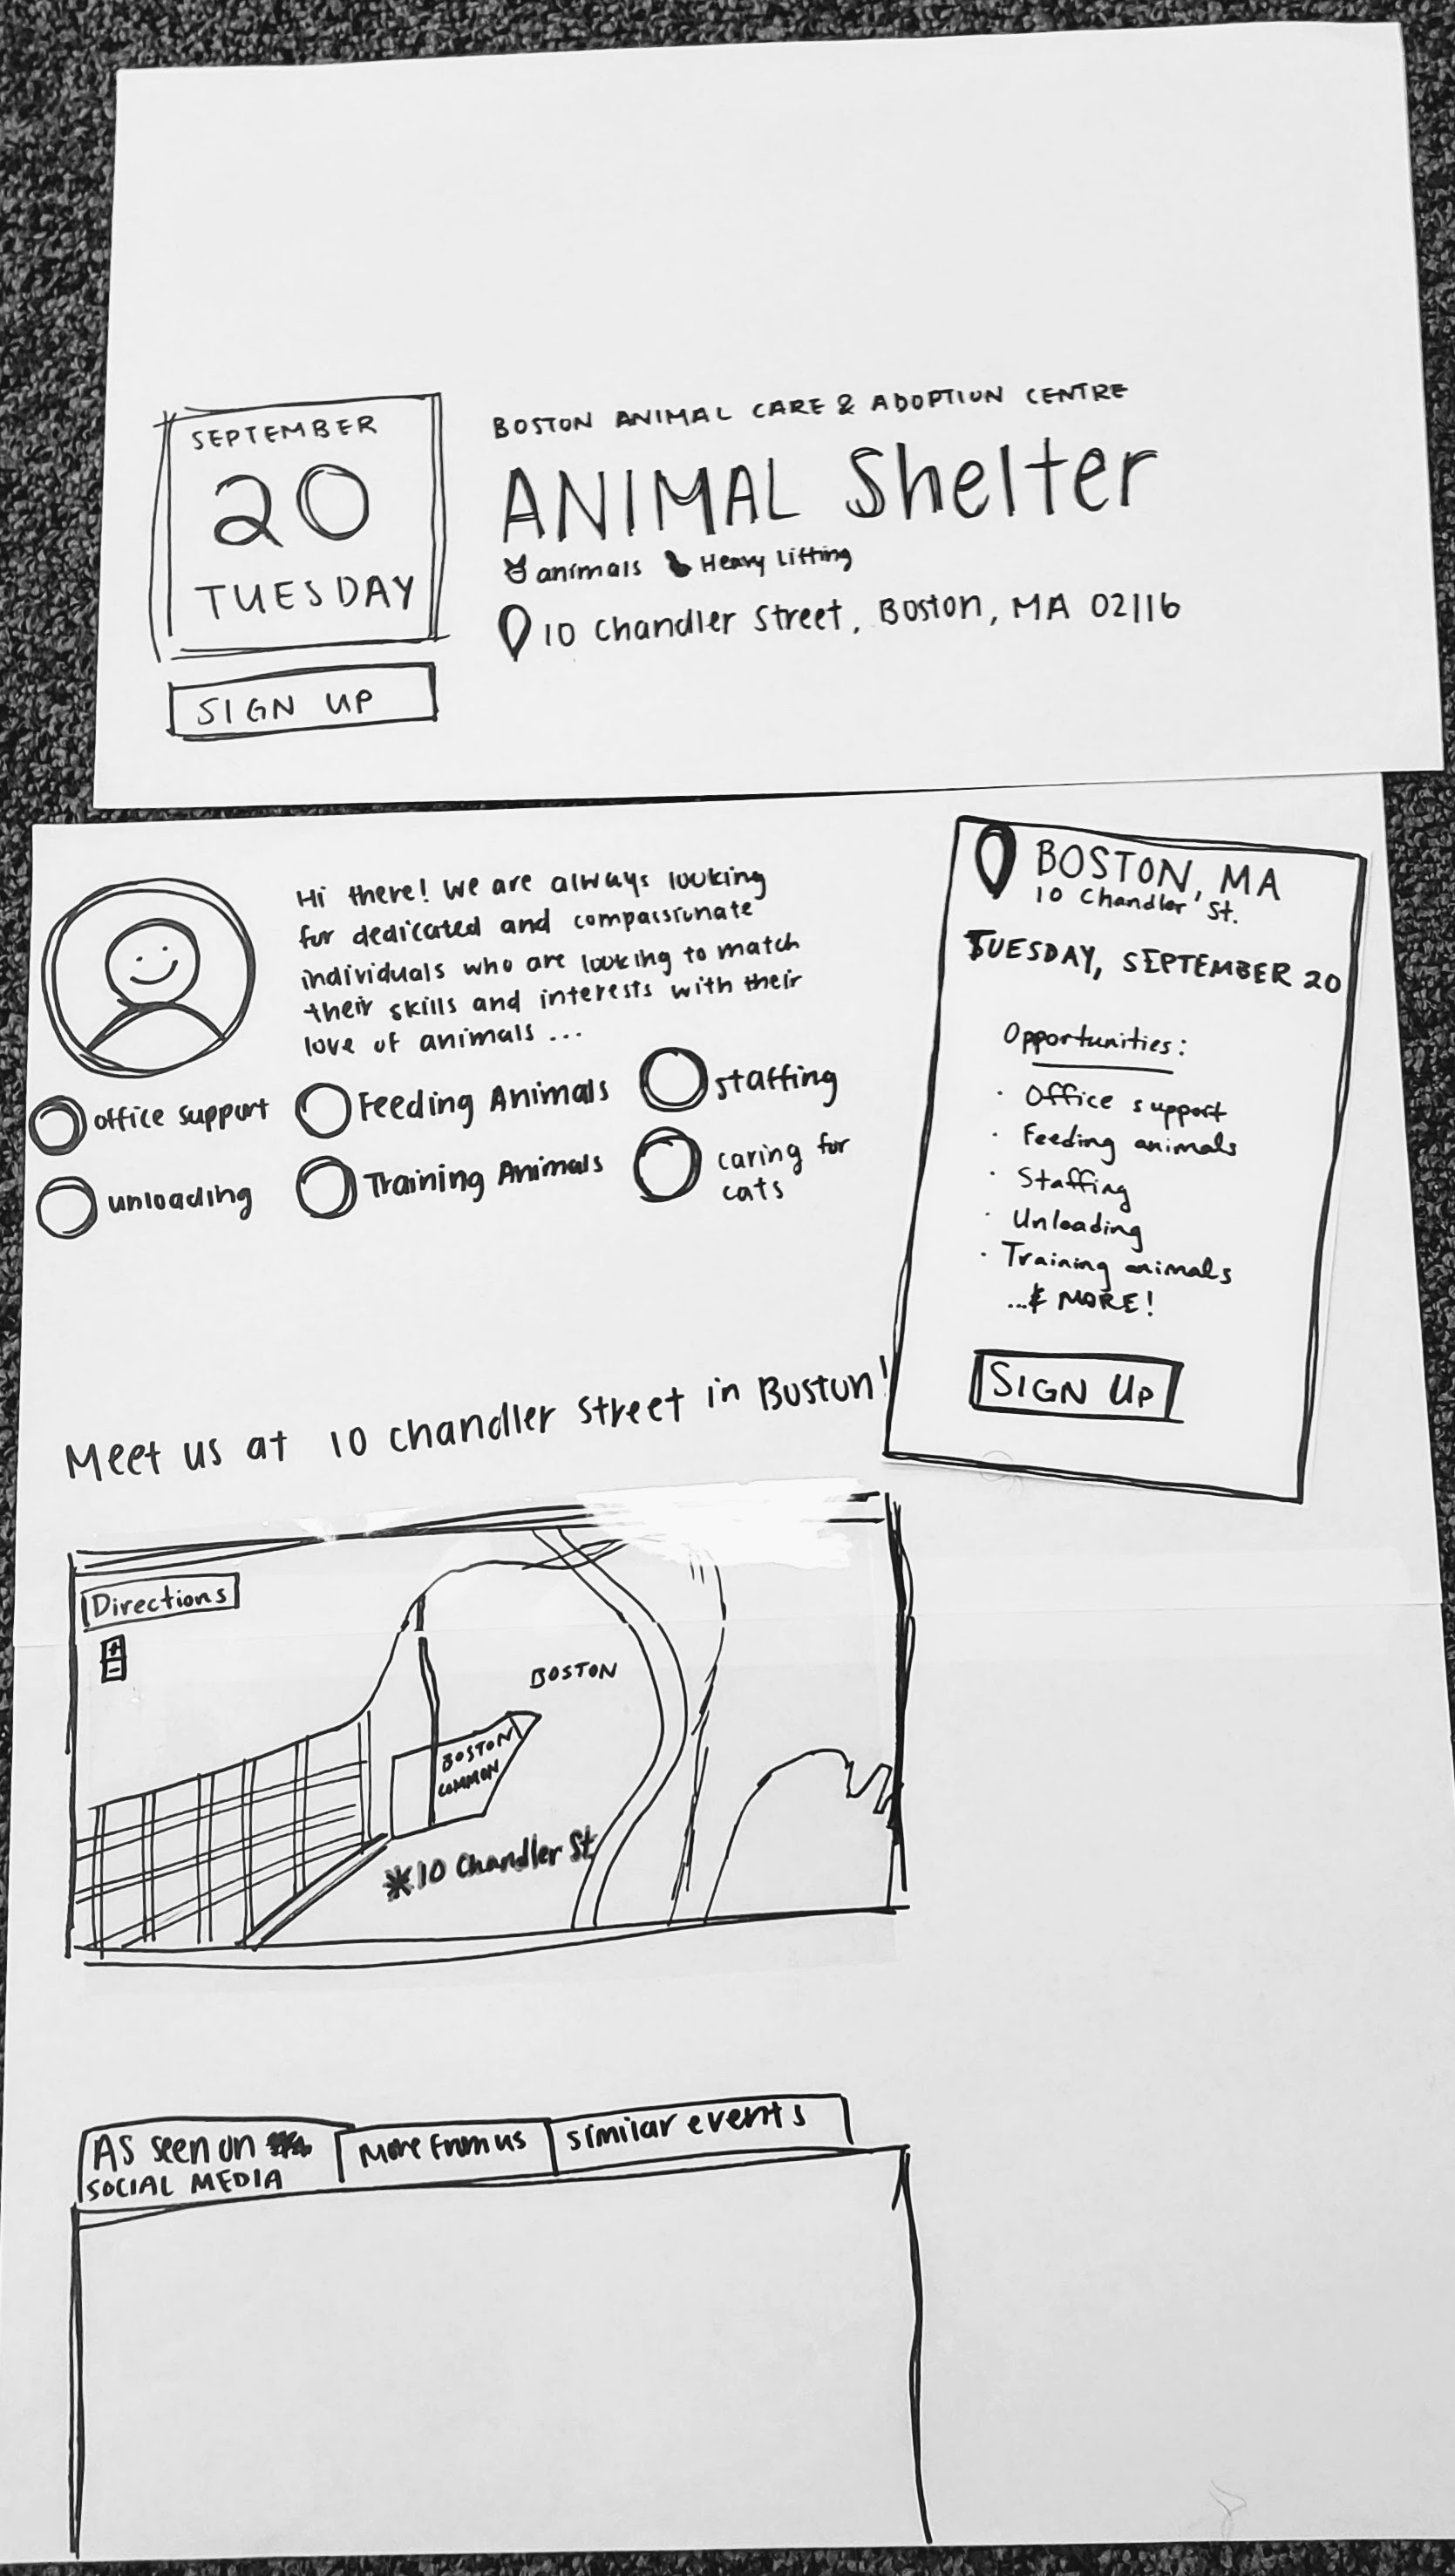 SEPTEMBER
20
TUESDAY
SIGN UP
BOSTON ANIMAL CARE & ADOPTION CENTRE
ANIMAL Shelter
animals Heavy Lifting
10 Chandler Street, Boston, MA 02116
Hi there! We are always looking
for dedicated and compassionate
individuals who are looking to match
their skills and interests with their
love of animals ...
office support
Feeding Animals
staffing
unloading
Training Animals
caring for
cats
BOSTON, MA
10 Chandler St.
TUESDAY, SEPTEMBER 20
Opportunities:
· Office support
· Feeding animals
· Staffing
· Unloading
· Training animals
...& MORE!
SIGN UP
Meet us at 10 Chandler Street in Boston!
Directions
+
-
BOSTON
BOSTON
COMMON
*10 Chandler St
As seen on
SOCIAL MEDIA
More from us
similar events